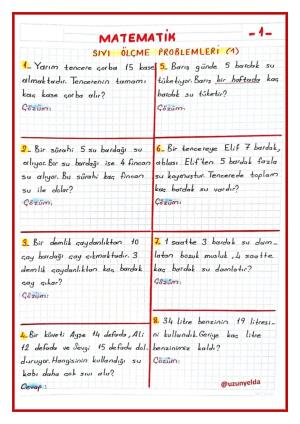 MATEMATİK
-1-
SIVI ÖLÇME PROBLEMLERİ (1)
1- Yarım tencere çorba 15 kase
almaktadır. Tencerenin tamamı
kaç kase çorba alır?
Çözüm:
5- Barış günde 5 bardak su
tüketiyor. Barış bir haftada kaç
bardak su tüketir?
Çözüm:
2- Bir sürahi 5 su bardağı su
alıyor. Bir su bardağı ise 4 fincan
su alıyor. Bu sürahi kaç fincan
su ile dolar?
Çözüm:
6- Bir tencereye Elif 7 bardak,
ablası Elif'ten 5 bardak fazla
su koymuştur. Tencerede toplam
kaç bardak su vardır?
Çözüm:
3- Bir demlik çaydanlıktan 10
çay bardağı çay çıkmaktadır. 3
demlik çaydanlıktan kaç bardak
çay çıkar?
Çözüm:
7- 1 saatte 3 bardak su dam-
latan bozuk musluk, 4 saatte
kaç bardak su damlatır?
Çözüm:
4- Bir küveti Ayşe 14 defada, Ali
12 defada ve Sevgi 15 defada dol-
duruyor. Hangisinin kullandığı su
kabı daha çok sıvı alır?
Cevap:
8- 34 litre benzinin 19 litresi-
ni kullandık. Geriye kaç litre
benzinimiz kaldı?
Çözüm:
@uzunyelda